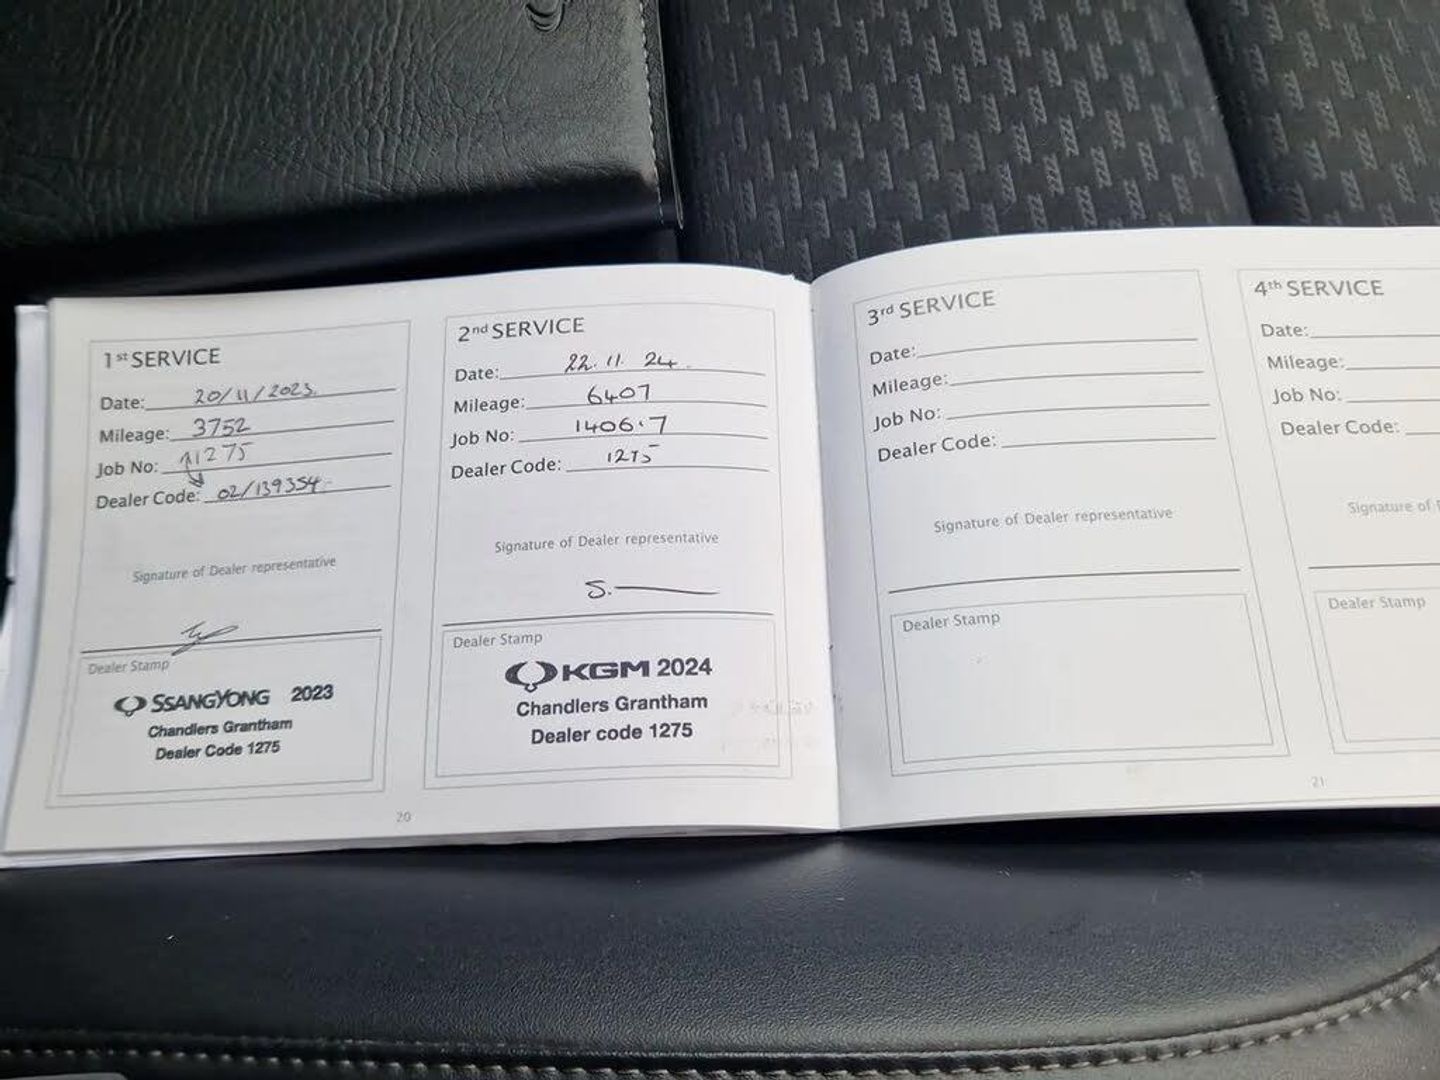 1st SERVICE
Date: 20/11/2023.
Mileage: 3752
Job No: 1275
Dealer Code: 02/139354
Signature of Dealer representative
Dealer Stamp
SSANGYONG 2023
Chandlers Grantham
Dealer Code 1275
2nd SERVICE
Date: 22.11.24
Mileage: 6407
Job No: 1406.7
Dealer Code: 1275
Signature of Dealer representative
S.
Dealer Stamp
KGM 2024
Chandlers Grantham
Dealer code 1275
20
3rd SERVICE
Date:
Mileage:
Job No:
Dealer Code:
Signature of Dealer representative
Dealer Stamp
4th SERVICE
Date:
Mileage:
Job No:
Dealer Code:
Signature of
Dealer Stamp
21